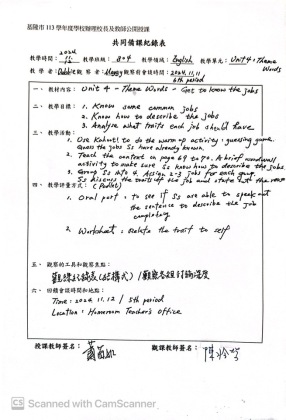 基隆市 113 學年度學校辦理校長及教師公開授課
共同備課紀錄表
教學時間: 2024 教學班級: 804 教學領域: English 教學單元: Unit 4 - Theme Words
教 學 者: 觀 察 者: 觀察前會談時間: 2024.11.11 6th period
一、 教材內容: Unit 4 - Theme Words - Get to know the jobs
二、 教學目標: 1. Know some common jobs
2. Know how to describe the jobs
3. Analyze what traits each job should have
三、 教學活動:
1. Use Kahoot! to do the warm up activity: guessing game.
Guess the jobs Ss have already known.
2. Teach the content on page 69 to 70. A brief
activity to make sure Ss know how to describe the jobs.
3. Group Ss into 4. Assign 2-3 jobs for each group.
Ss discuss the traits of the job and state
四、 教學評量方式: (Padlet)
1. Oral part: to see if Ss are able to speak out
the sentence to describe the job
completely
2. Worksheet: Relate the trait to self
五、 觀察的工具和觀察焦點:
觀課紀錄表(結構式) / 觀察各組討論深度
六、 回饋會談時間和地點:
Time: 2024.11.12 / 5th period
Location: Homeroom Teacher's Office
授課教師簽名: 觀課教師簽名:
CS Scanned with CamScanner